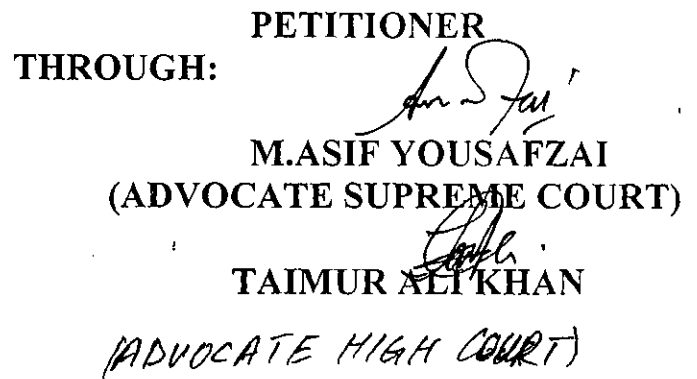 PETITIONER
THROUGH:
M.ASIF YOUSAFZAI
(ADVOCATE SUPREME COURT)
TAIMUR ALI KHAN
(ADVOCATE HIGH COURT)